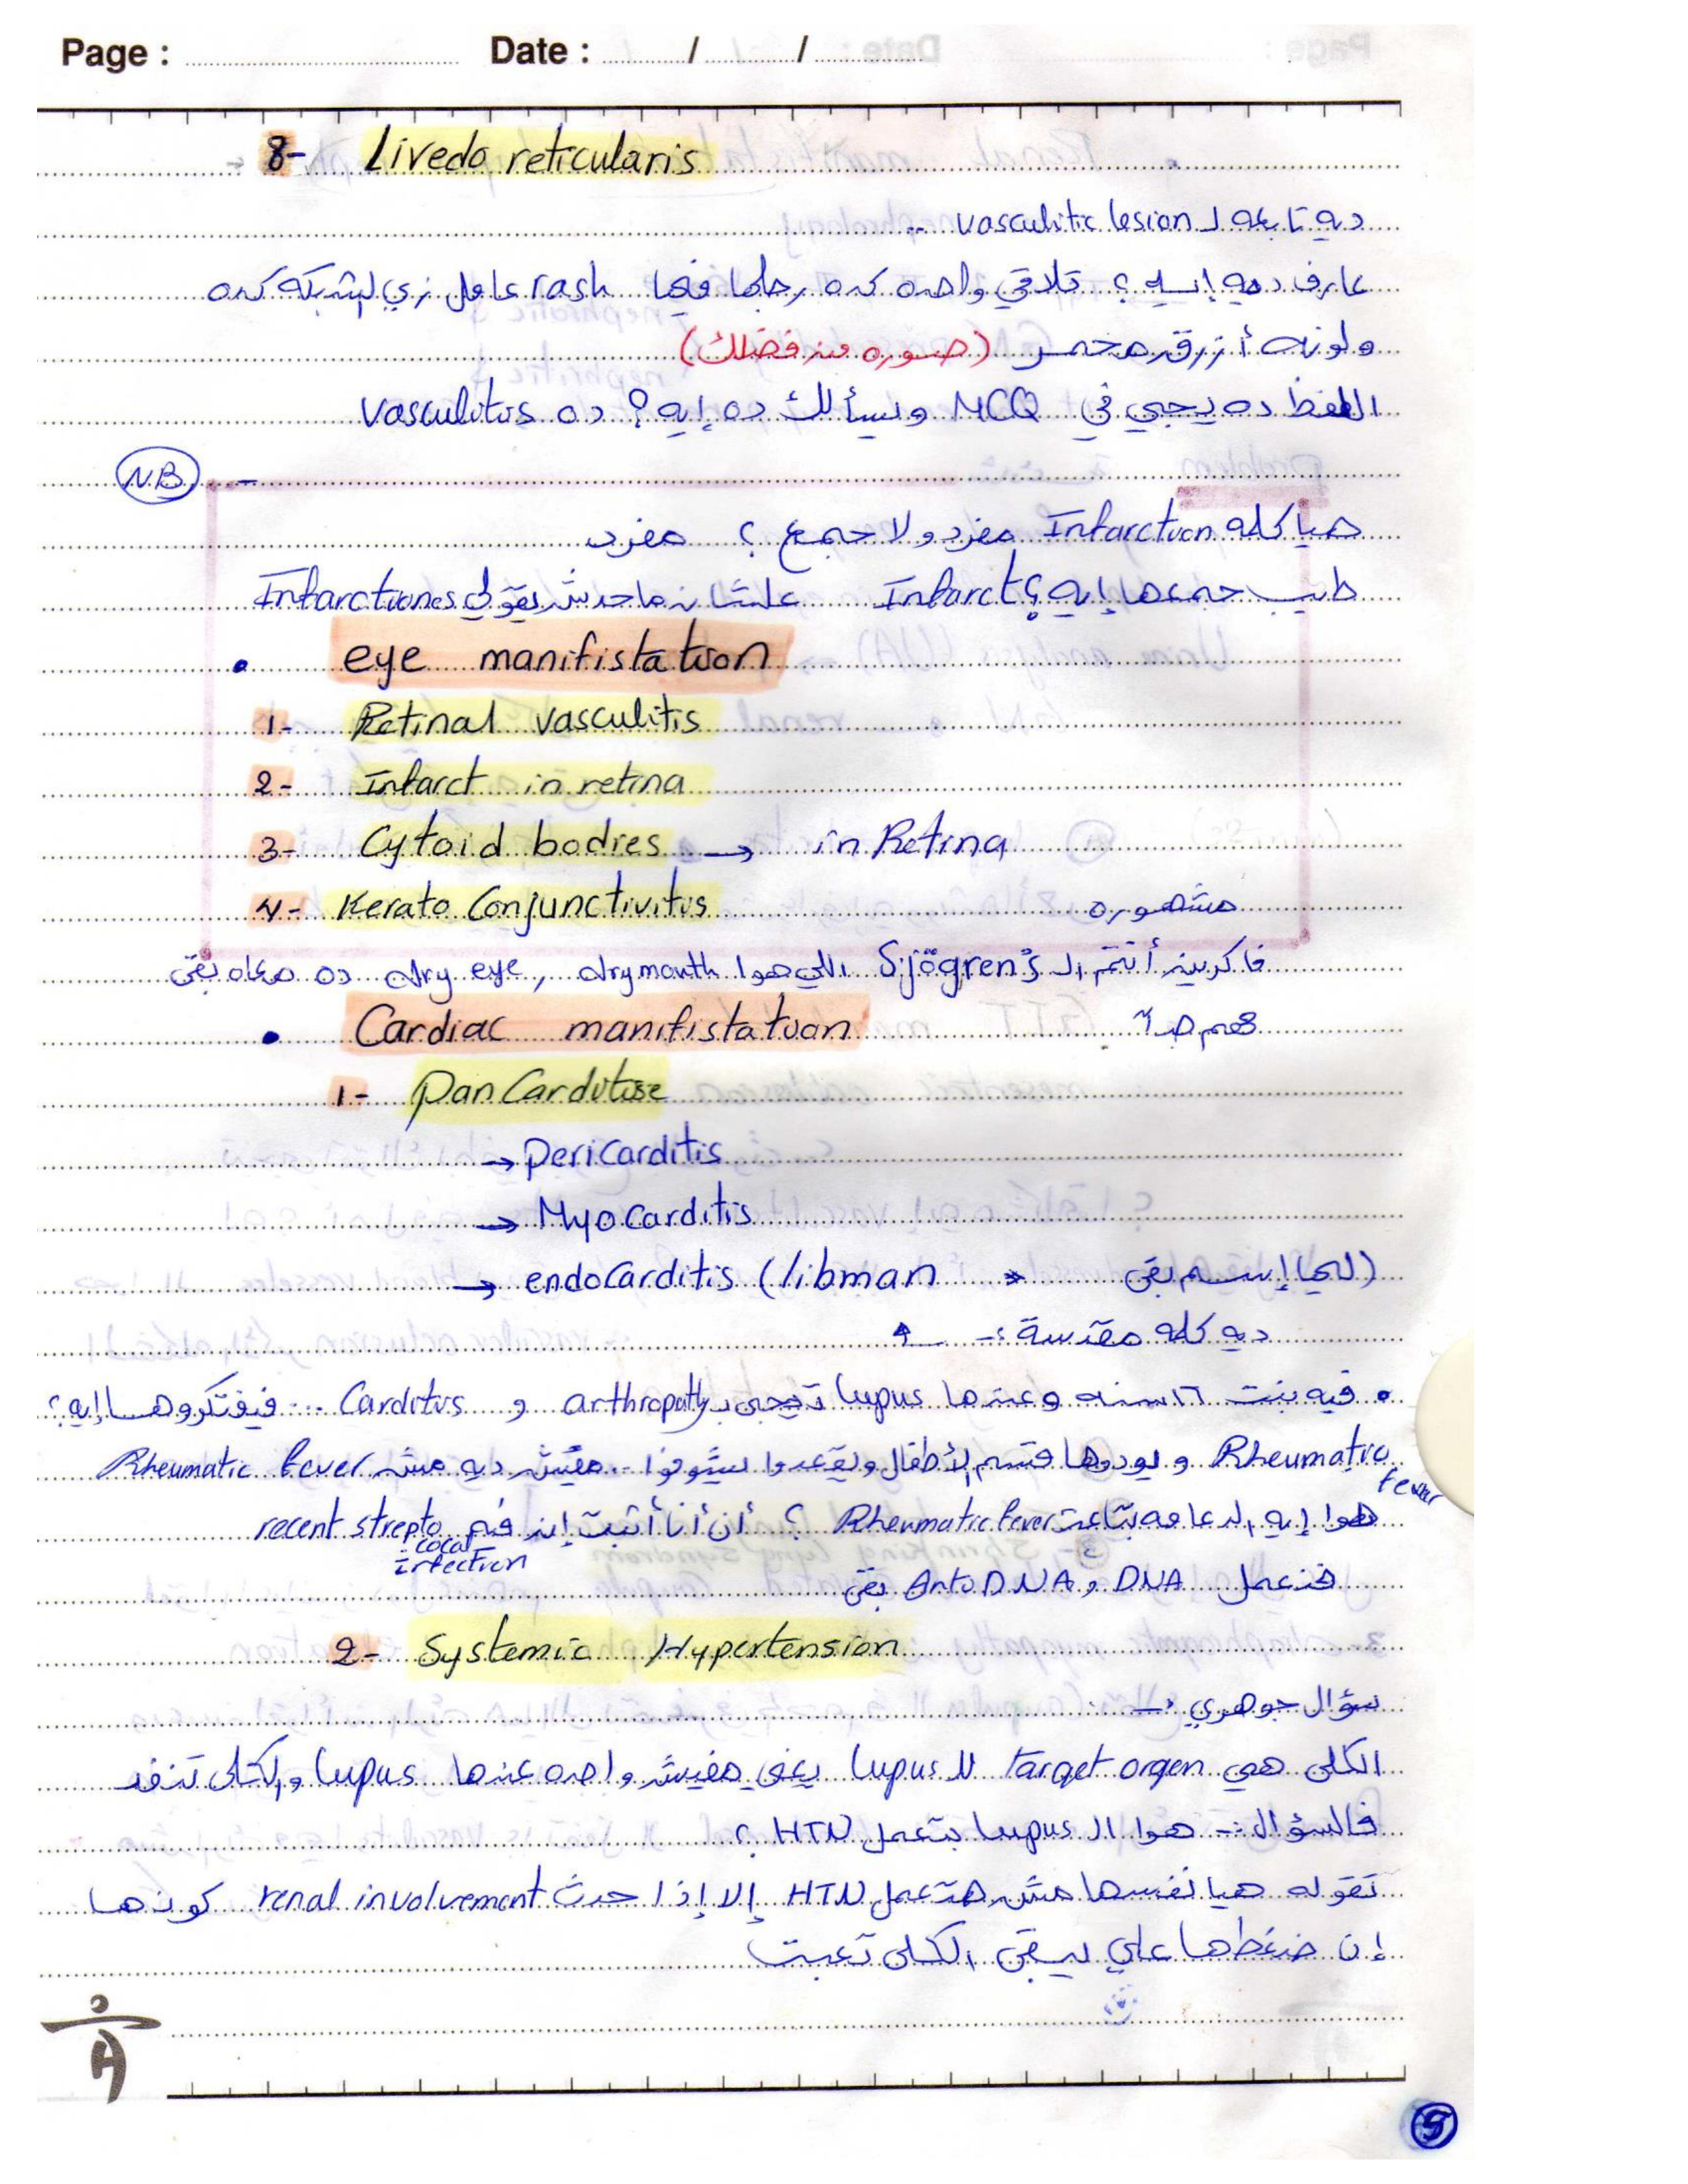 Page : Date : / /
8- Livedo reticularis
ديه تابعه لـ vasculitic lesion ..
عارف ديه إيه ؟ تلاقي واحده كده رجلها فيها rash عامل زي الشبكه كده
ولونه أزرق محمر (صوره من فضلك)
اللفظ ده يجي في MCQ ويسألك ده إيه ؟ ده vasculitis
N.B -
هيا كلمه Infarction مفرد ولا جمع ؟ مفرد
طيب جمعها إيه ؟ Infarct علشان ماحدش يقولي Infarctiones
• eye manifistation
1- Retinal vasculitis
2- Infarct in retina
3- Cytoid bodies → in Retina
4- Kerato Conjunctivitis مشهوره
فاكرين أنتم الـ Sjögren's اللي هوا dry mouth , dry eye ده معاه بقى
• Cardiac manifistation
1- Pan Carditise
→ pericarditis
→ Myocarditis
→ endocarditis (libman ليها إسم بقى)
ديه كلمه مقدسة :-
• فيه بنت ١٦ سنه وعندها lupus تيجى بـ arthropathy و Carditis ... فيفتكروها إيه ؟
Rheumatic fever و يودوها قسم الأطفال ويقعدوا يشوفوا .. مفيش ديه مش Rheumatic fever
هوا إيه الدعامه بتاعت Rheumatic fever ؟ أن أنا أثبت إن فيه recent strepto
cocal infection
فنعمل Anti DNA , DNA بقى
2- Systemic Hypertension
سؤال جوهري :-
الكلى هي target orgen للـ lupus يعني مفيش واحده عندها lupus والكلى تنفد
فالسؤال :- هوا الـ lupus بتعمل HTN ؟
تقوله هيا نفسها مش هتعمل HTN إلا إذا حدث renal involvement كونها
إن ضغطها علي يبقى الكلى تعبت
5